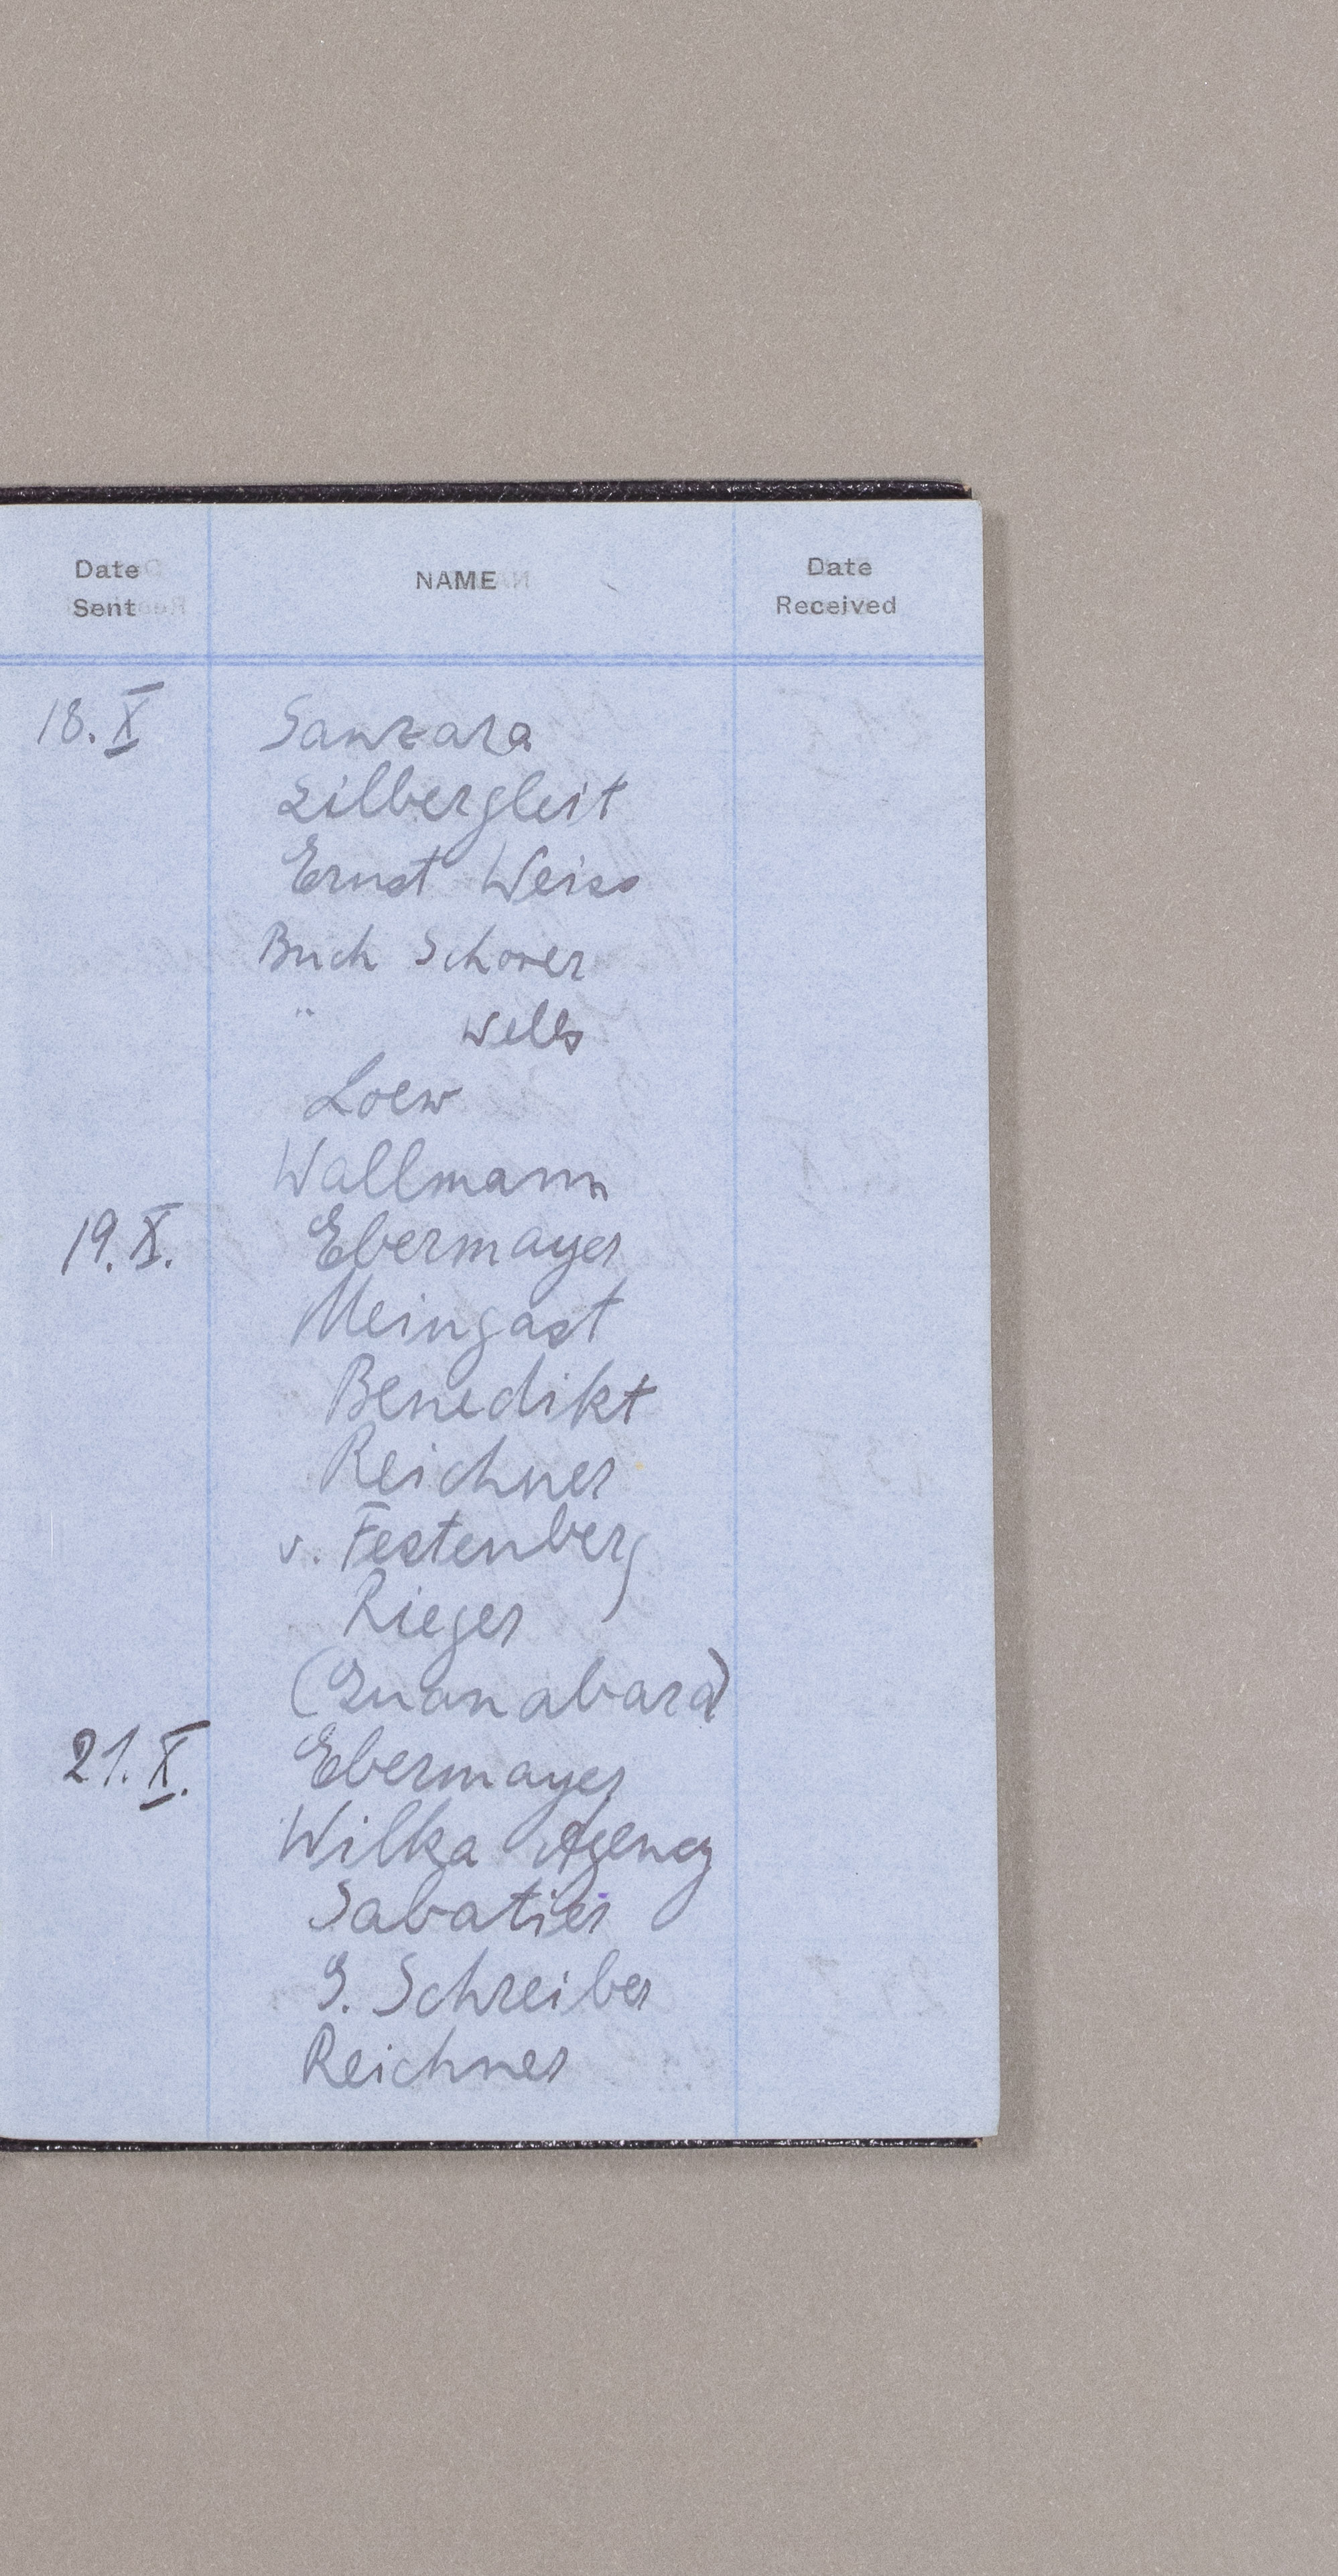 Date Sent NAME Date Received
18. X Sanzara
Silbergleit
Ernst Weiss
Buch Schorer
" Wells
Loew
Wallmann
19. X. Ebermayer
Meingast
Benedikt
Reichner
v. Festenberg
Rieger
(Guanabara)
21. X. Ebermayer
Wilka Agency
Sabatier
G. Schreiber
Reichner